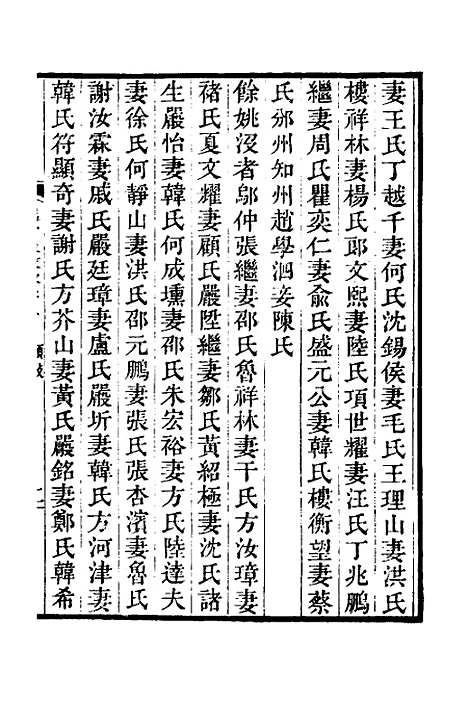 妻王氏丁越千妻何氏沈錫侯妻毛氏王理山妻洪氏
樓祥林妻楊氏郎文熙妻陸氏項世耀妻汪氏丁兆鵬
繼妻周氏瞿奕仁妻俞氏盛元公妻韓氏樓衡望妻蔡
氏邠州知州趙學泗妾陳氏
餘姚沒者鄔仲張繼妻邵氏魯祥林妻干氏方汝璋妻
褚氏夏文耀妻顧氏嚴陞繼妻鄒氏黃紹極妻沈氏諸
生嚴怡妻韓氏何成壎妻邵氏朱宏裕妻方氏陸逵夫
妻徐氏何靜山妻洪氏邵元鵬妻張氏張杏濱妻魯氏
謝汝霖妻戚氏嚴廷璋妻盧氏嚴圻妻韓氏方河津妻
韓氏符顯奇妻謝氏方芥山妻黃氏嚴銘妻鄭氏韓希